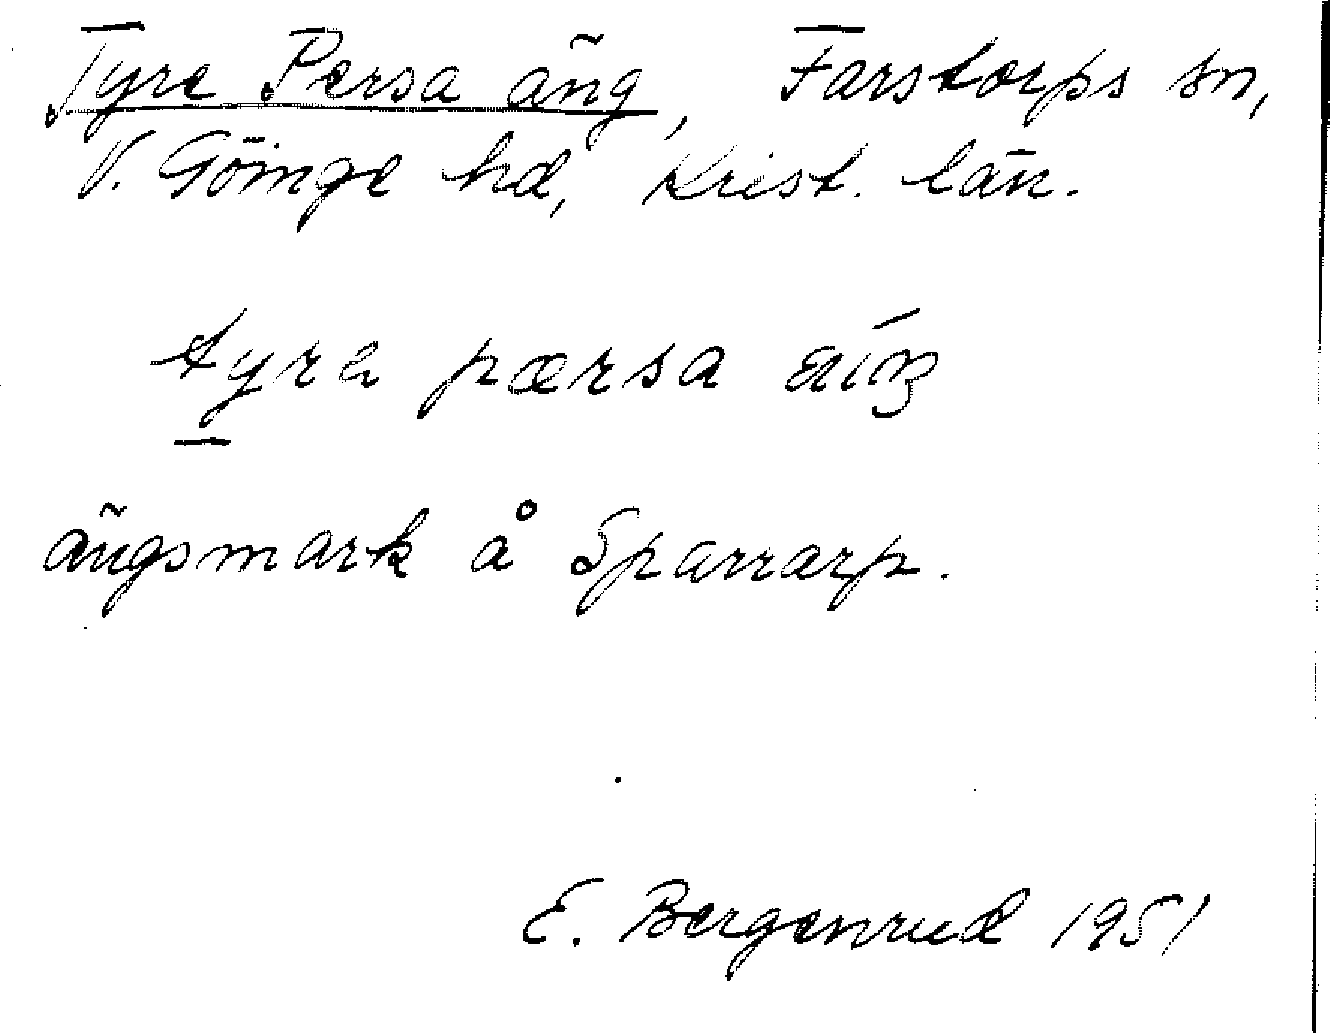 Tyre Persa äng, Farstorps sn,
V. Göinge hd, Krist. län.
tyra pærsa
ängsmark å Sparrarp.
E. Bergenrud 1951